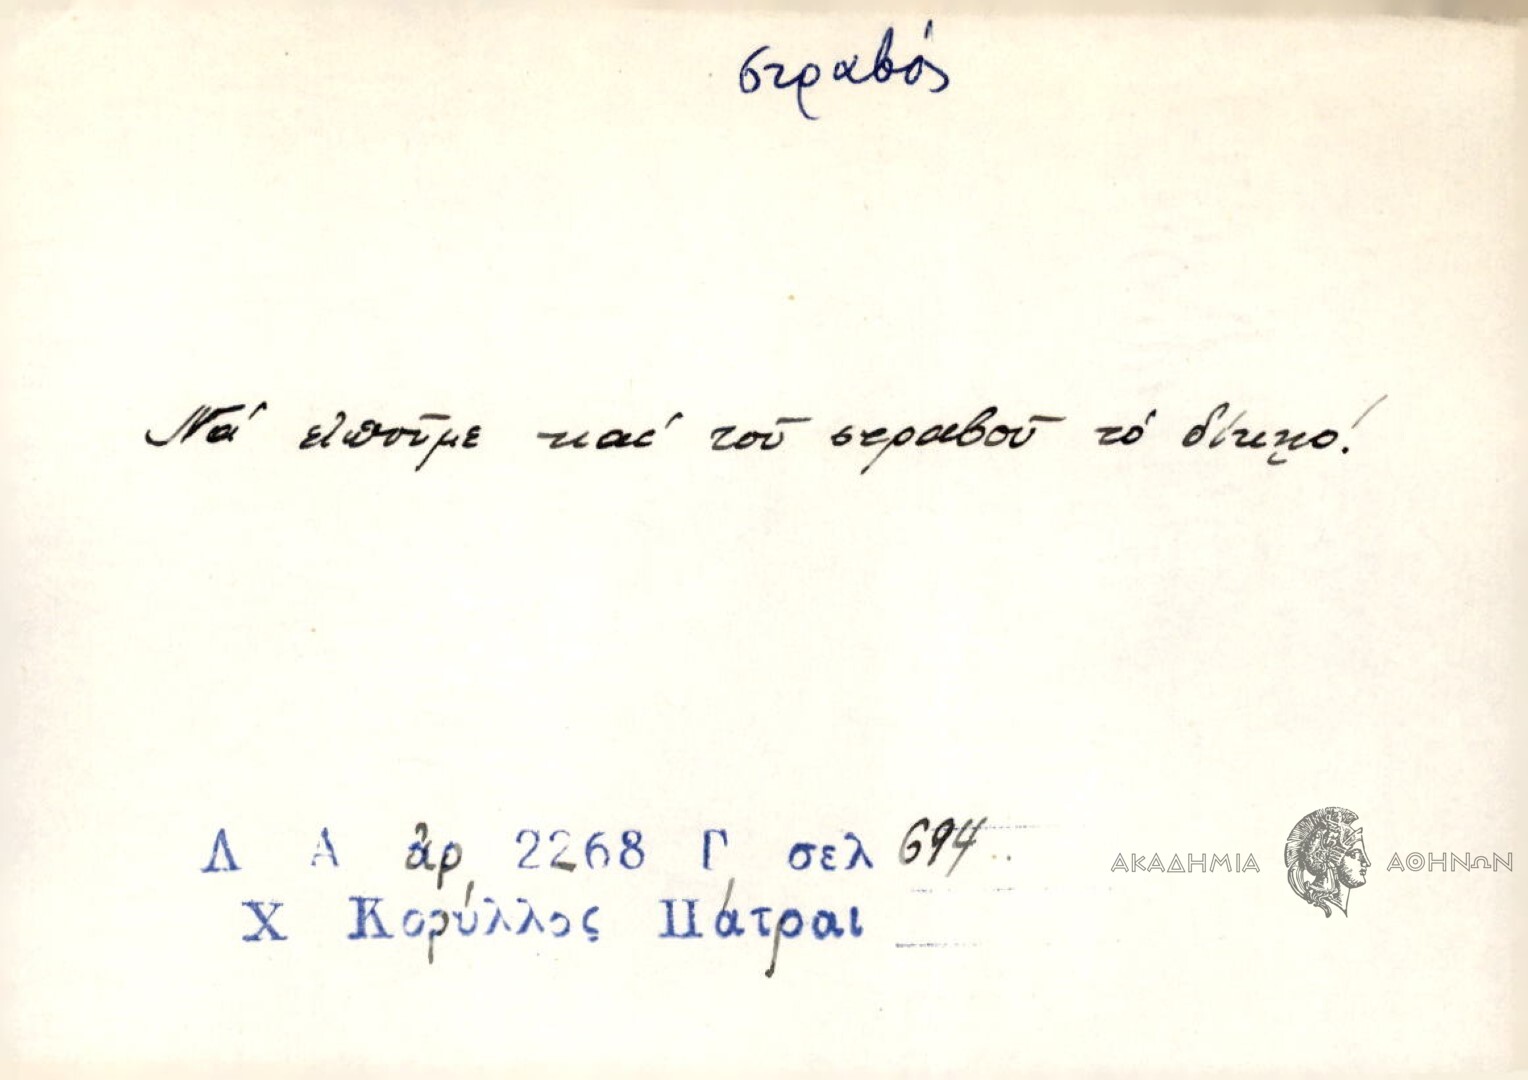 στραβός
Νά εἰποῦμε καί τοῦ στραβοῦ τό δίκηο!
Λ Α ἀρ 2268 Γ σελ 694
Χ Κορύλλος Πάτραι
ΑΚΑΔΗΜΙΑ ΑΘΗΝΩΝ